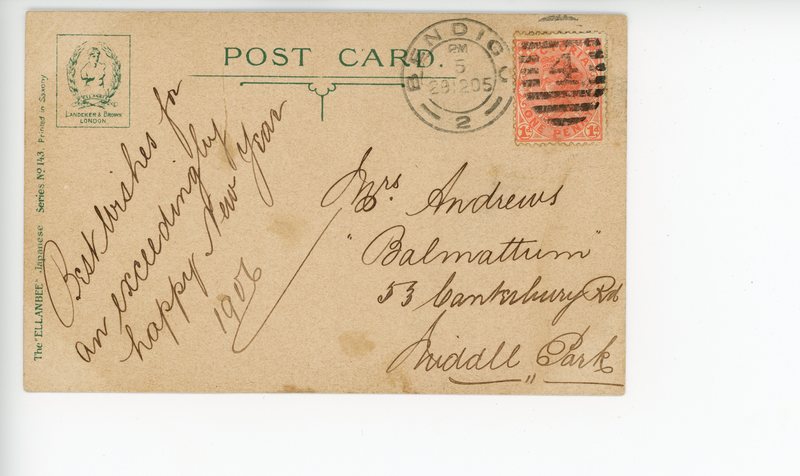 POST CARD.
LANDEKER & BROWN
LONDON
The "ELLANBEE" Japanese Series No 143. Printed in Saxony
BENDIGO
PM
5
29 12 05
2
4
ONE PENNY
1d 1d
Best wishes for
an exceedingly
happy New Year
1906
Mrs. Andrews
"Balmattum"
53 Canterbury Rd
Middle Park